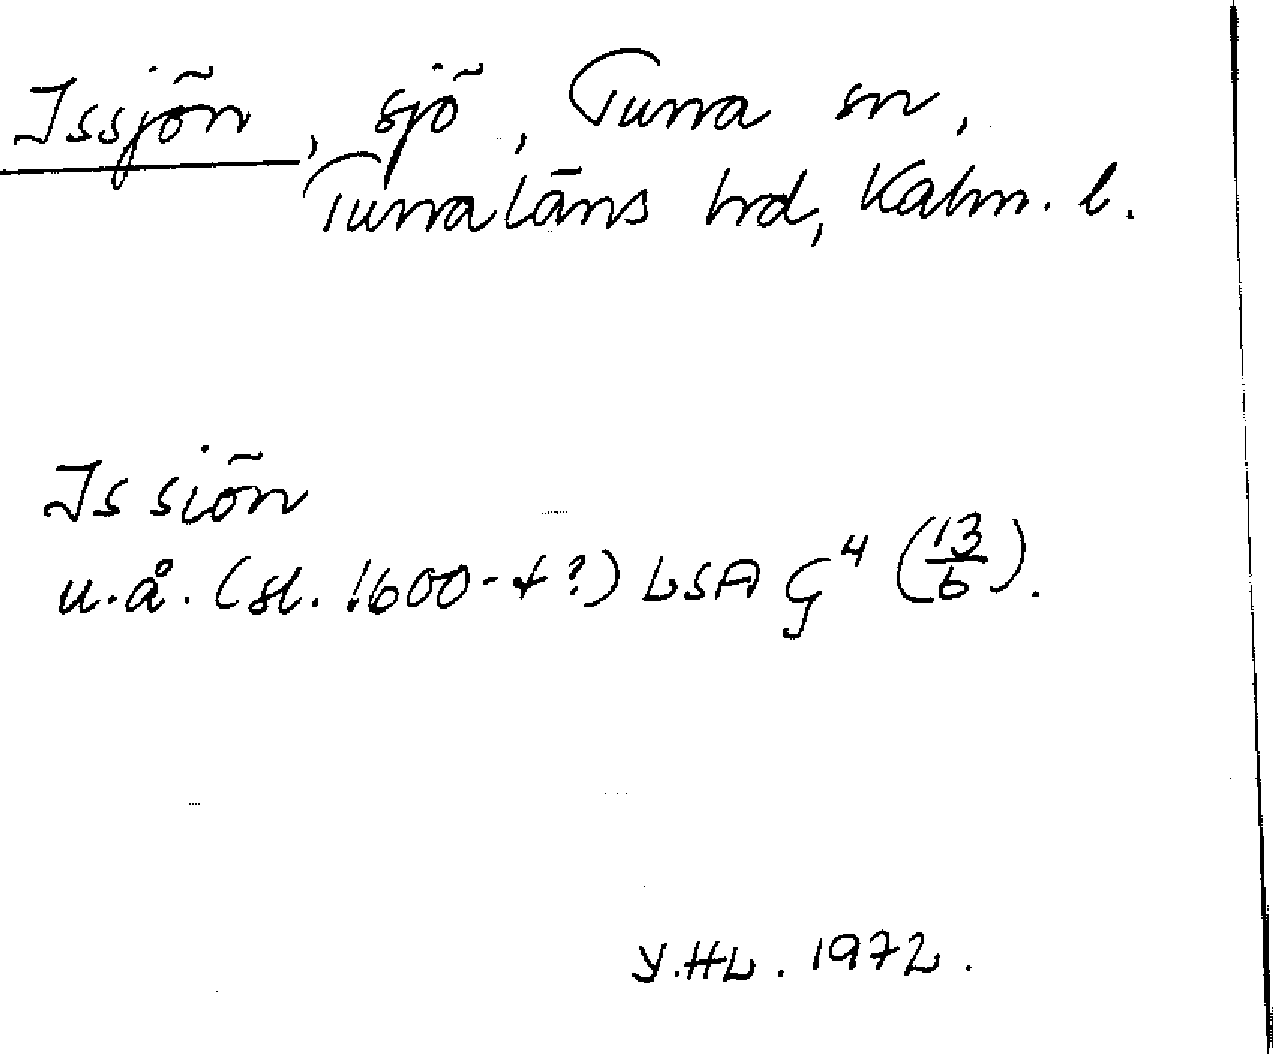 Issjön, sjö, Tuna sn,
Tunaläns hd, Kalm. l.
Is siön
u.å. (sl. 1600-t?) LSA G⁴ (13/6).
Y.HL. 1972.